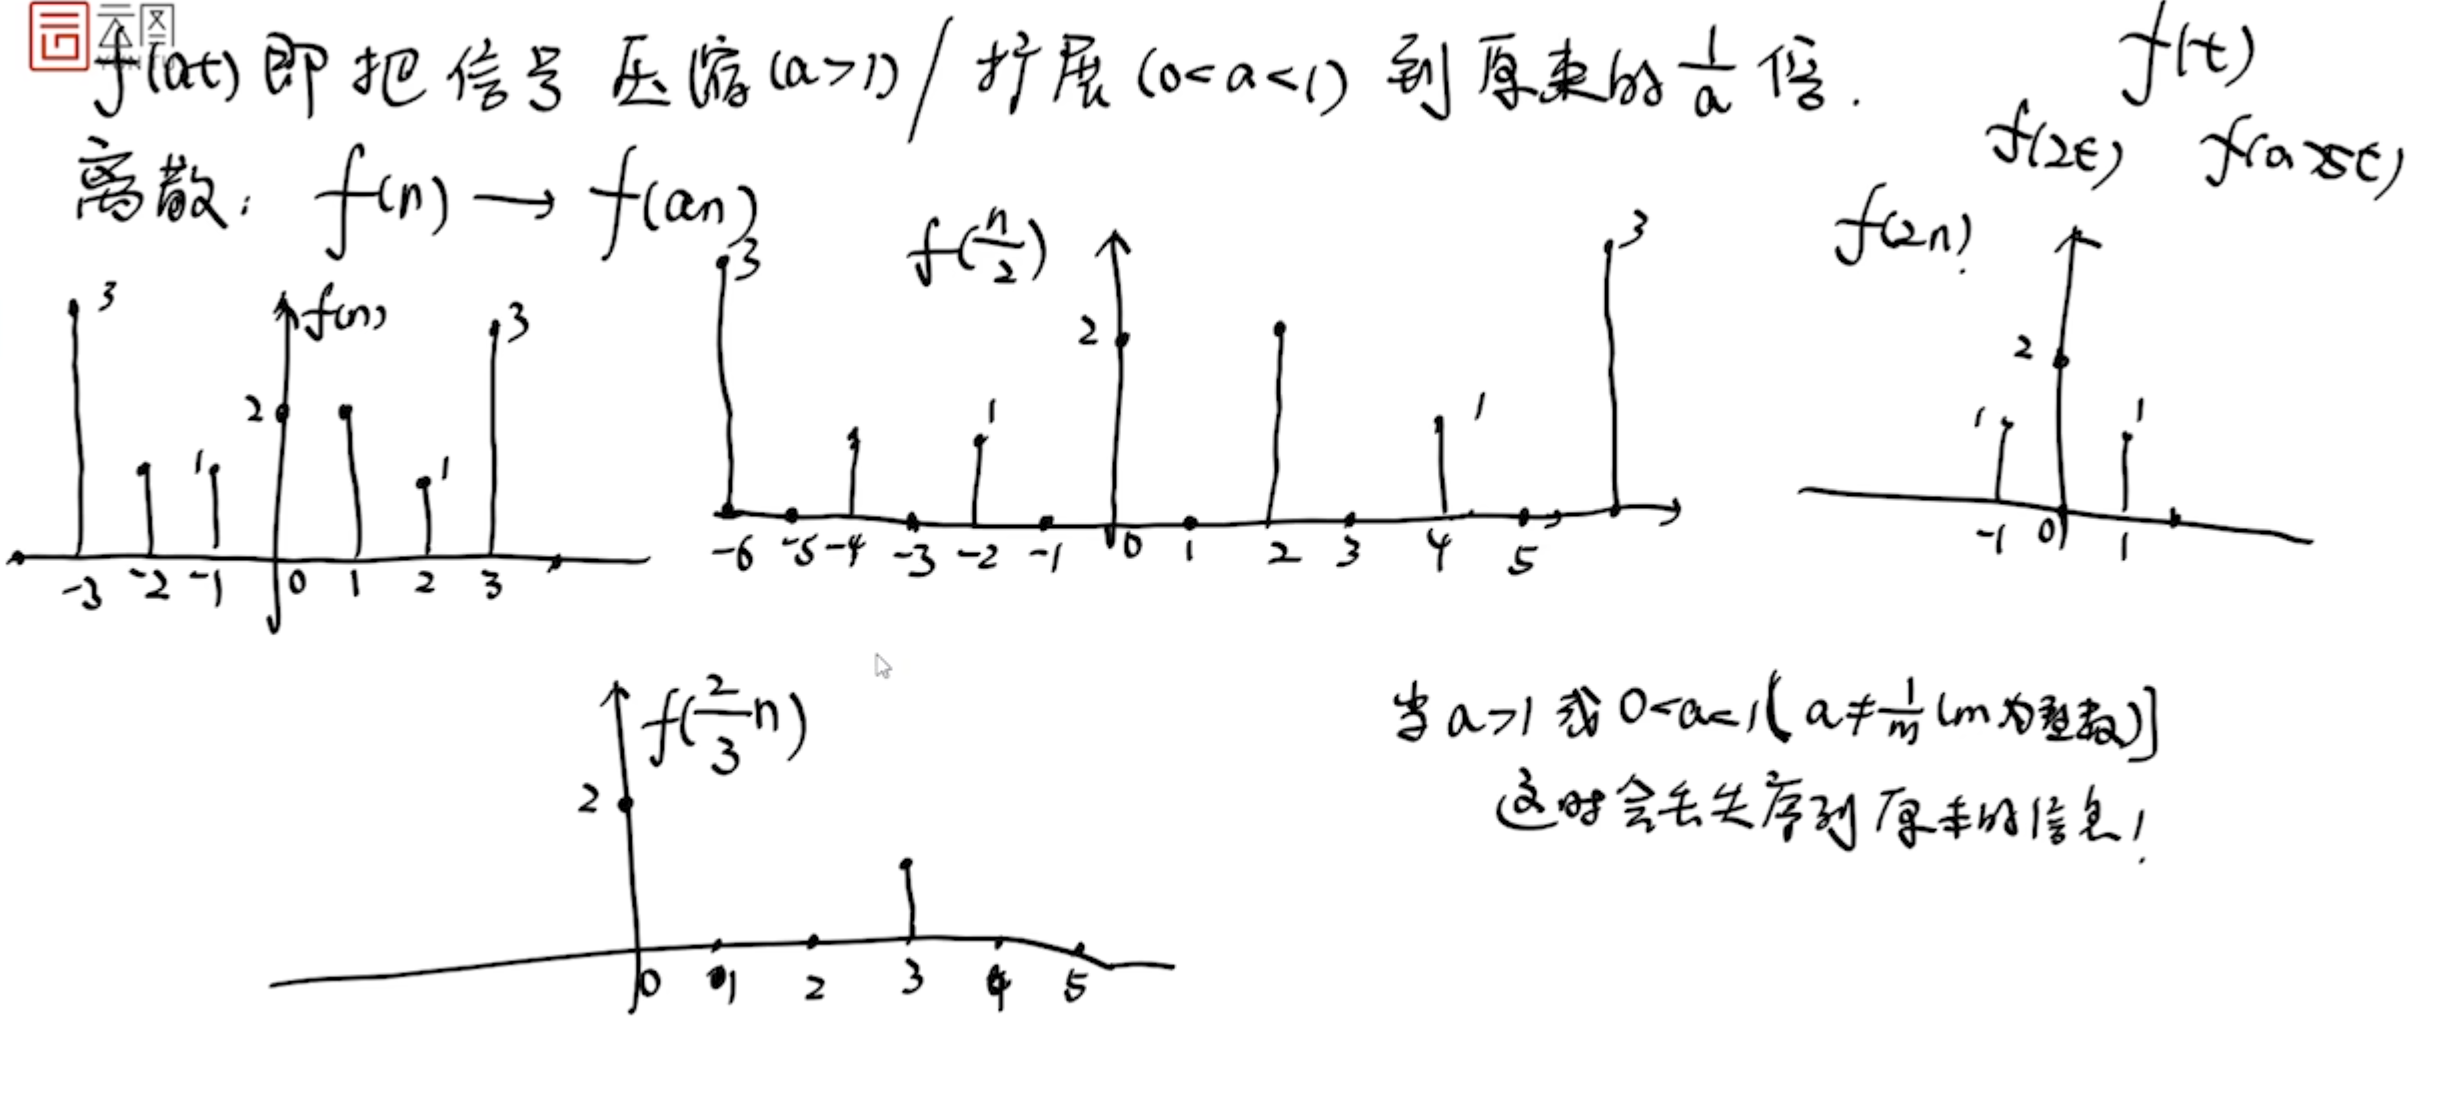 云图
f(at) 即把信号压缩(a>1)/扩展(0<a<1) 到原来的 1/a 倍.
f(t)
f(2t) f(0.5t)
离散: f(n) → f(an)
3 f(n) 3
2
1 1
-3 -2 -1 0 1 2 3
3 f(n/2) 3
2
1 1
-6 -5 -4 -3 -2 -1 0 1 2 3 4 5
f(2n)!
2
1 1
-1 0 1
f(2/3 n)
2
0 1 2 3 4 5
当 a>1 或 0<a<1( a≠1/m (m为整数)]
这时会丢失序列原来的信息!